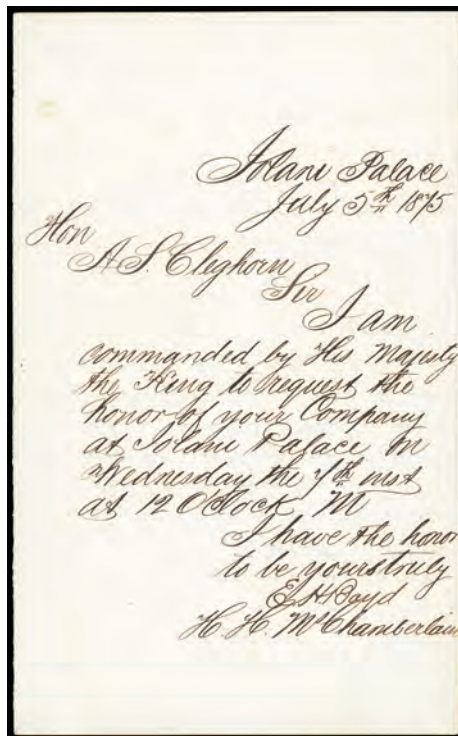 Iolani Palace
July 5th 1875
Hon
A S. Cleghorn
Sir
I am
commanded by His Majesty
the King to request the
honor of your Company
at Iolani Palace on
Wednesday the 7th inst
at 12 O'Clock M
I have the honor
to be yours truly
E. H. Boyd
H. H. M's Chamberlain